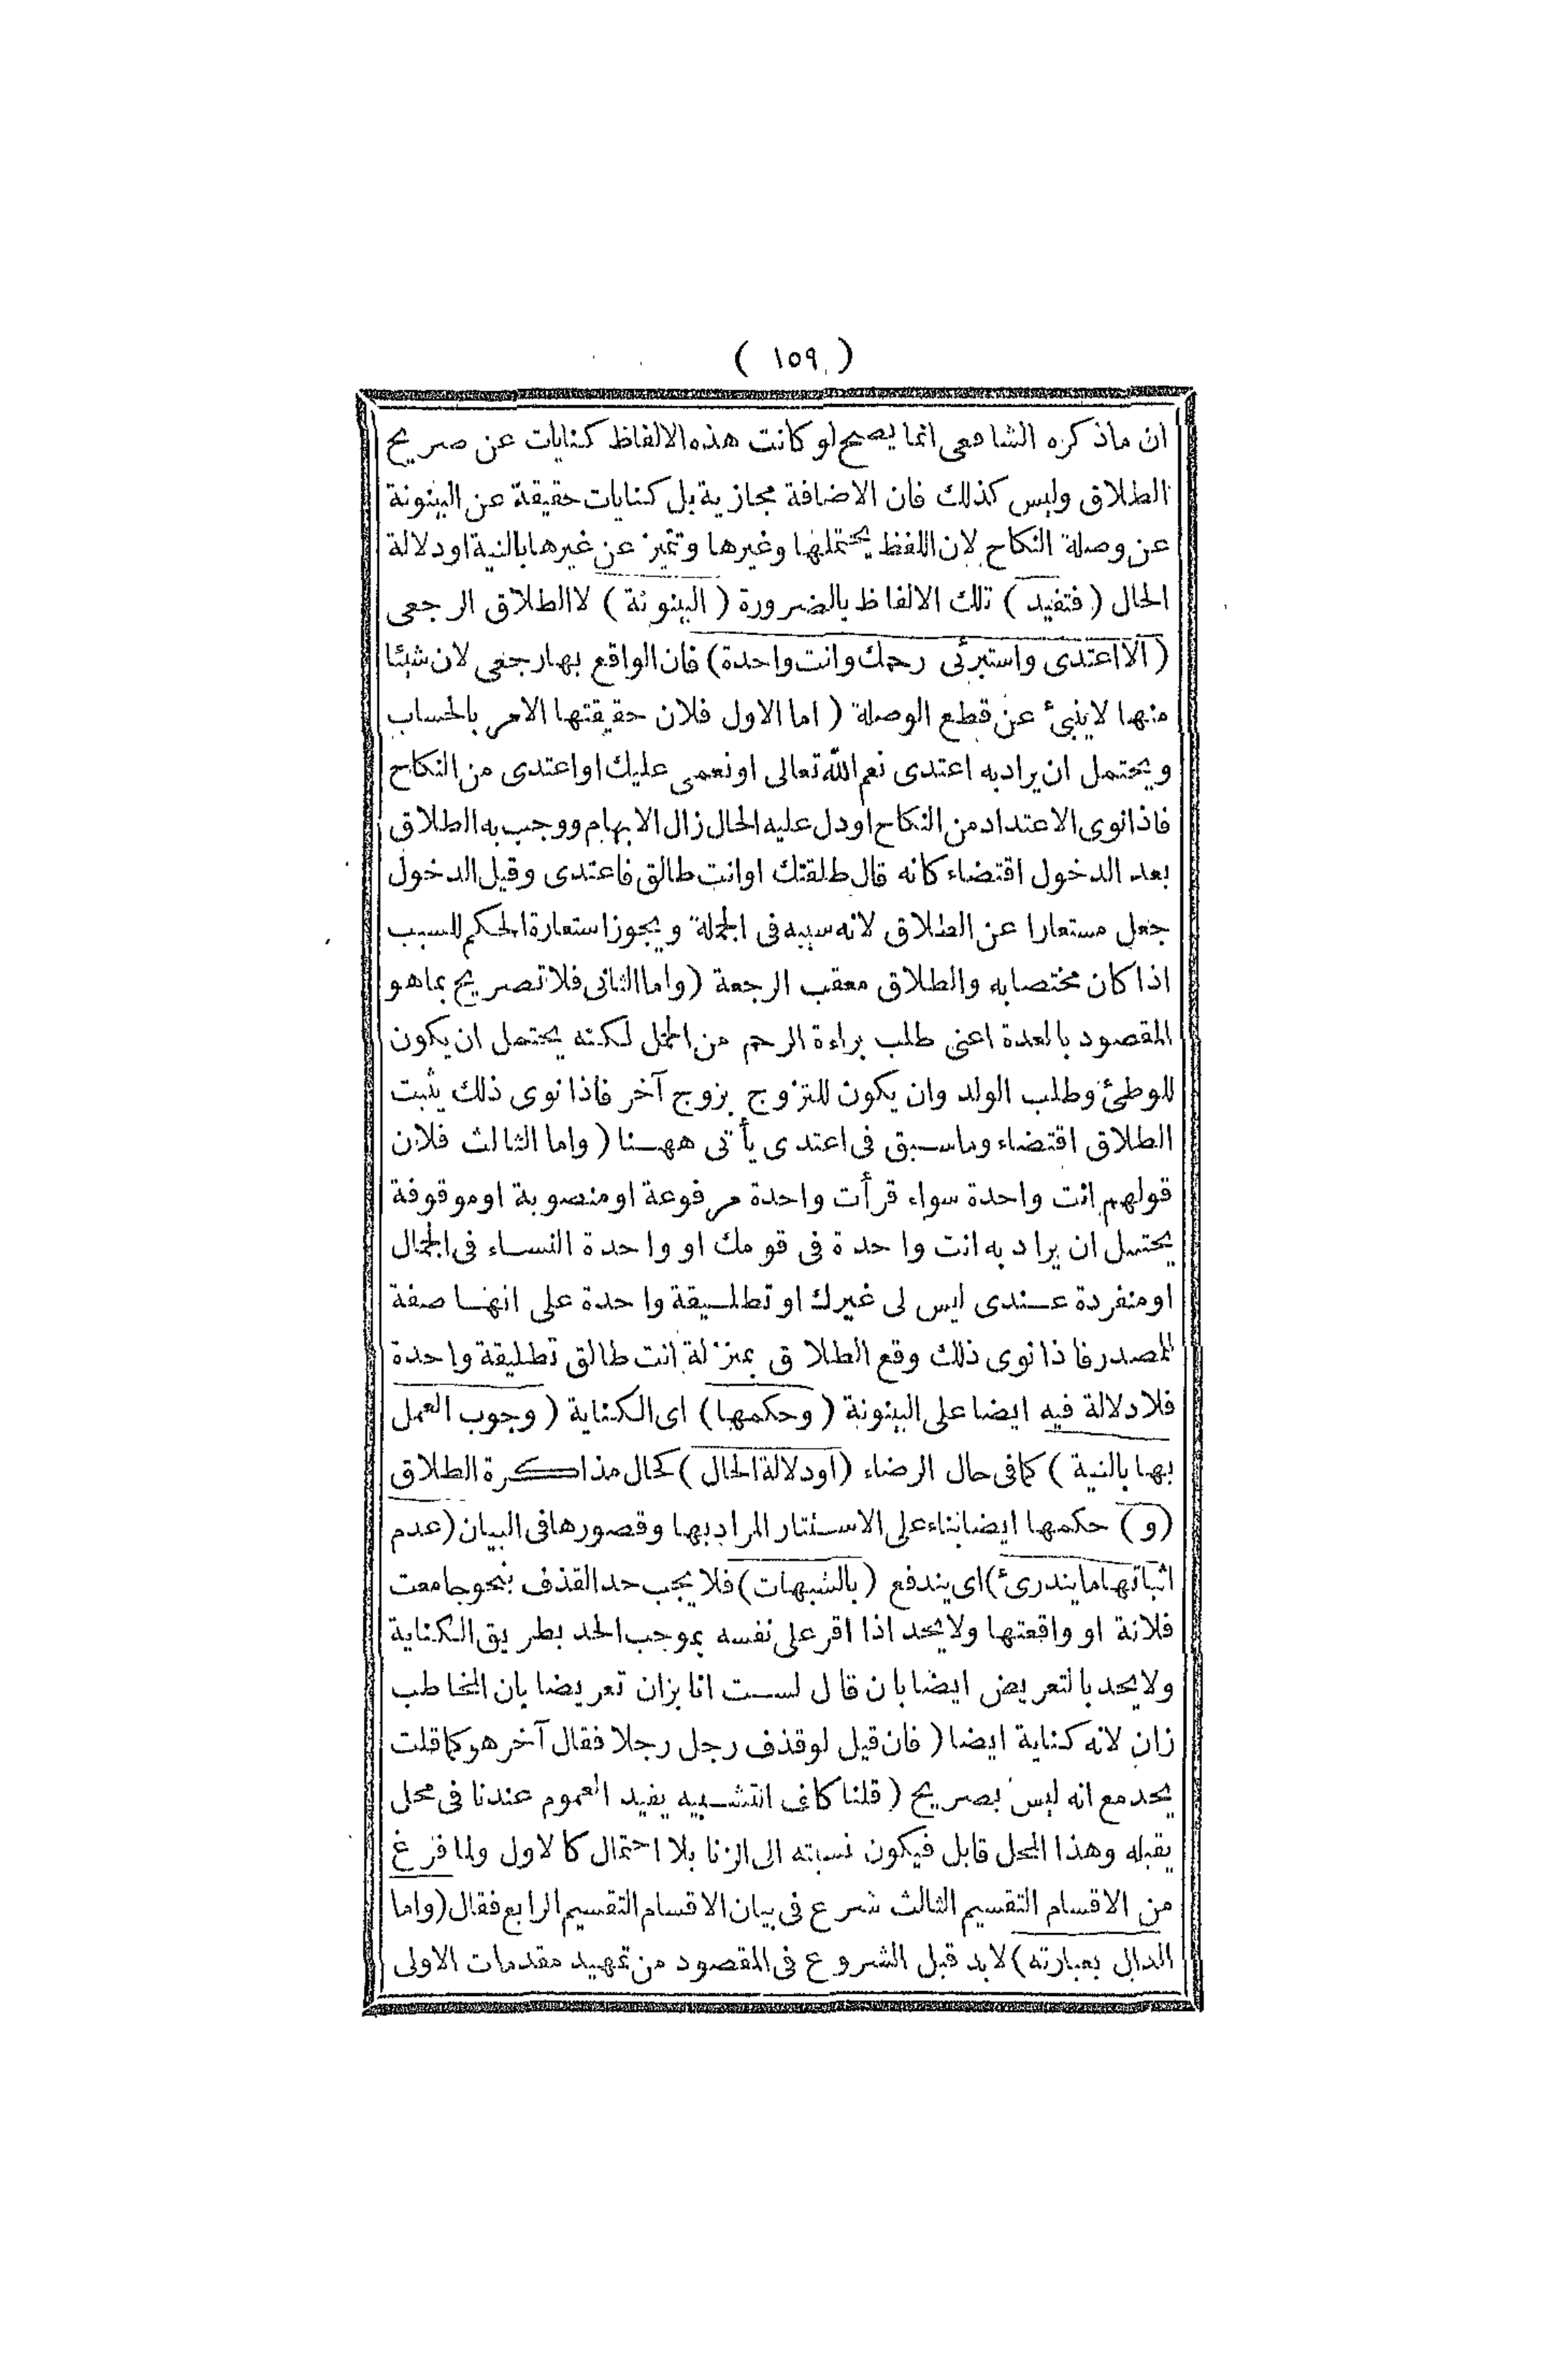 ( ١٥٩ )
ان ماذكره الشافعى انما يصح لو كانت هذه الالفاظ كنايات عن صريح
الطلاق وليس كذلك فان الاضافة مجازية بل كنايات حقيقة عن البينونة
عن وصلة النكاح لان اللفظ يحتملها وغيرها وتتميز عن غيرها بالنية او دلالة
الحال ( فتفيد ) تلك الالفاظ بالضرورة ( البينونة ) لا الطلاق الرجعى
( الا اعتدى واستبرئى رحمك وانت واحدة ) فان الواقع بها رجعى لان شيئا
منها لاينبئ عن قطع الوصلة ( اما الاول فلان حقيقتها الامر بالحساب
ويحتمل ان يراد به اعتدى نعم الله تعالى او نعمى عليك او اعتدى من النكاح
فاذا نوى الاعتداد من النكاح او دل عليه الحال زال الابهام ووجب به الطلاق
بعد الدخول اقتضاء كانه قال طلقتك او انت طالق فاعتدى وقبل الدخول
جعل مستعارا عن الطلاق لانه سببه فى الجملة ويجوز استعارة الحكم للسبب
اذا كان مختصا به والطلاق معقب الرجعة ( واما الثانى فلا تصريح بما هو
المقصود بالعدة اعنى طلب براءة الرحم من الحمل لكنه يحتمل ان يكون
للوطئ وطلب الولد وان يكون للتزوج بزوج آخر فاذا نوى ذلك يثبت
الطلاق اقتضاء وماسبق فى اعتدى يأتى ههنا ( واما الثالث فلان
قولهم انت واحدة سواء قرأت واحدة مرفوعة او منصوبة او موقوفة
يحتمل ان يراد به انت واحدة فى قومك او واحدة النساء فى الجمال
او منفردة عندى ليس لى غيرك او تطليقة واحدة على انها صفة
للمصدر فاذا نوى ذلك وقع الطلاق بمنزلة انت طالق تطليقة واحدة
فلا دلالة فيه ايضا على البينونة ( وحكمها ) اى الكناية ( وجوب العمل
بها بالنية ) كما فى حال الرضاء ( او دلالة الحال ) كحال مذاكرة الطلاق
( و ) حكمها ايضا بناء على الاستتار المراد بها وقصورها فى البيان ( عدم
اثباتها ما يندرئ ) اى يندفع ( بالشبهات ) فلا يجب حد القذف بنحو جامعت
فلانة او واقعتها ولا يحد اذا اقر على نفسه بموجب الحد بطريق الكناية
ولا يحد بالتعريض ايضا بان قال لست انا بزان تعريضا بان المخاطب
زان لانه كناية ايضا ( فان قيل لو قذف رجل رجلا فقال آخر هو كما قلت
يحد مع انه ليس بصريح ( قلنا كاف التشبيه يفيد العموم عندنا فى محل
يقبله وهذا المحل قابل فيكون نسبته الى الزنا بلا احتمال كالاول ولما فرغ
من الاقسام التقسيم الثالث شرع فى بيان الاقسام التقسيم الرابع فقال ( واما
الدال بعبارته ) لابد قبل الشروع فى المقصود من تمهيد مقدمات الاولى